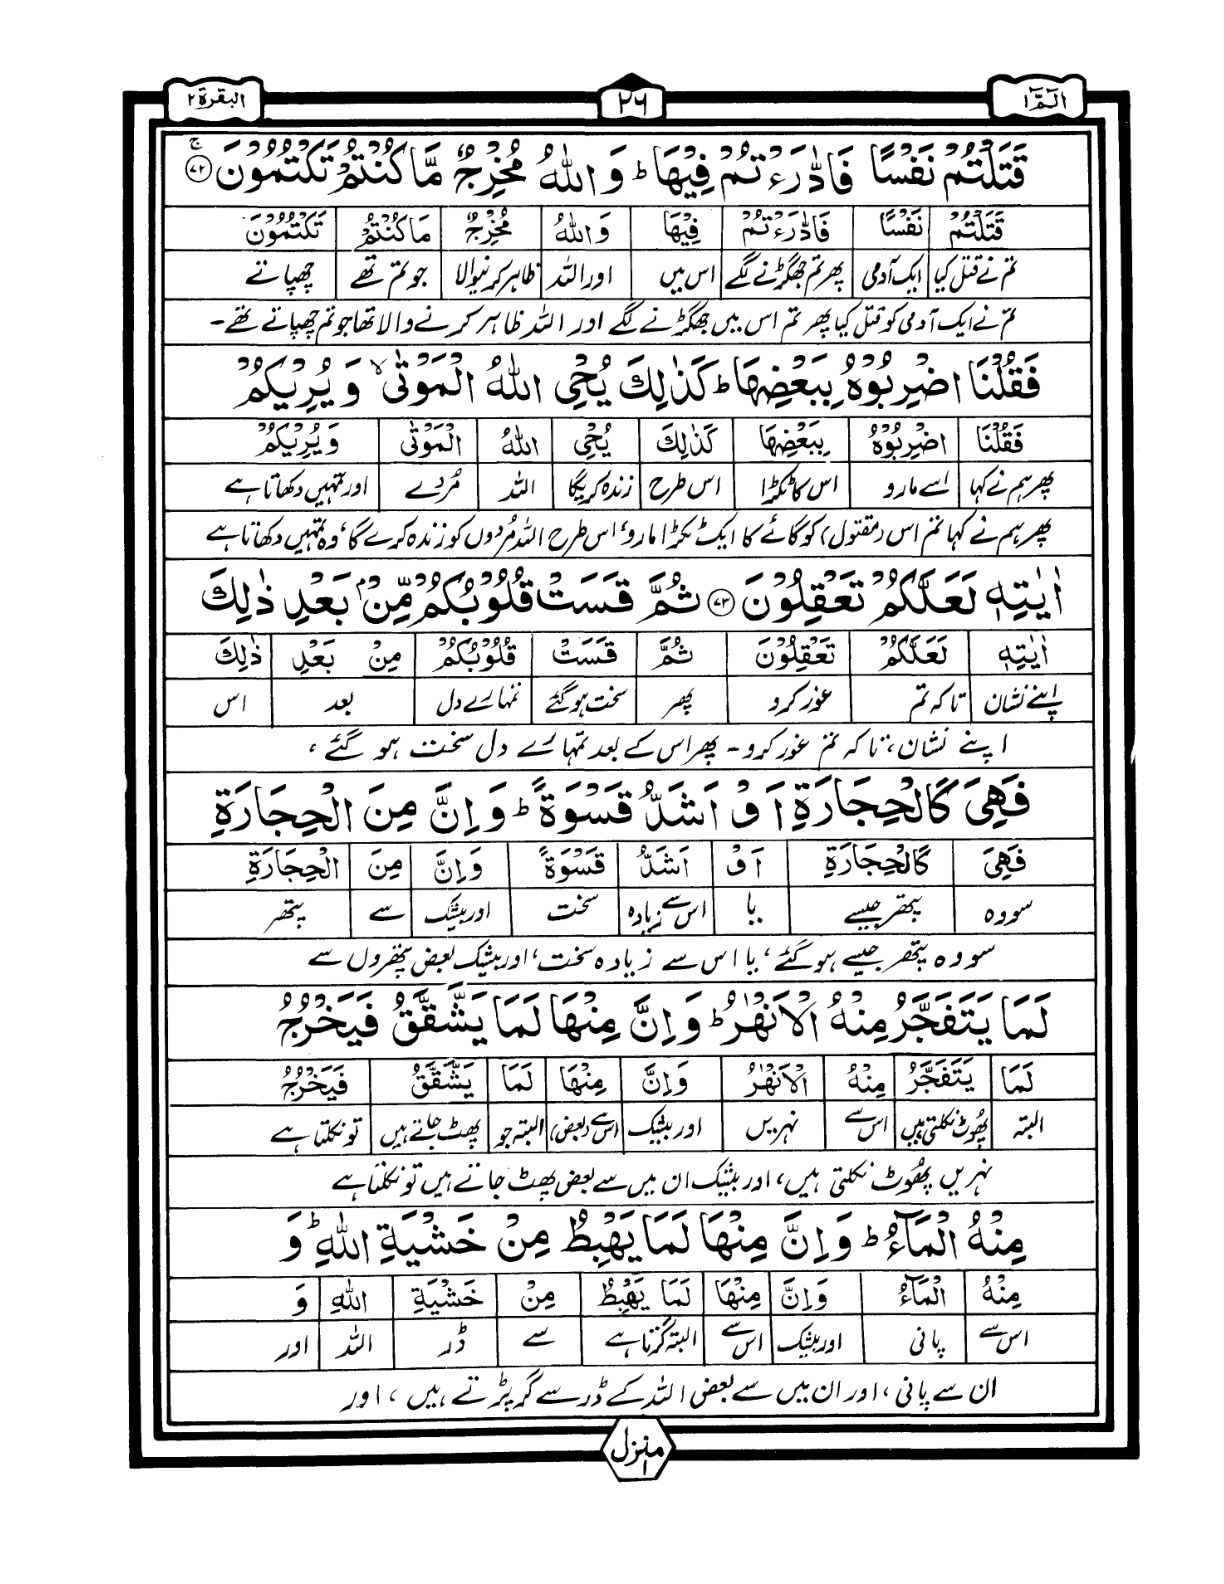 الٓمّٓ ۱
۲۶
البقرة ۲
قَتَلْتُمْ نَفْسًا فَادّٰرَءْتُمْ فِيْهَا ؕ وَ اللّٰهُ مُخْرِجٌ مَّا كُنْتُمْ تَكْتُمُوْنَ ۚ ﴿۷۲﴾
قَتَلْتُمْ نَفْسًا فَادّٰرَءْتُمْ فِيْهَا وَ اللّٰهُ مُخْرِجٌ مَا كُنْتُمْ تَكْتُمُوْنَ
تم نے قتل کیا ایک آدمی پھر تم جھگڑنے لگے اس میں اور اللہ ظاہر کرنیوالا جو تم تھے چھپاتے
تم نے ایک آدمی کو قتل کیا پھر تم اس میں جھگڑنے لگے اور اللہ ظاہر کرنے والا تھا جو تم چھپاتے تھے۔
فَقُلْنَا اضْرِبُوْهُ بِبَعْضِهَا ؕ كَذٰلِكَ يُحْيِ اللّٰهُ الْمَوْتٰى ۙ وَ يُرِيْكُمْ
فَقُلْنَا اضْرِبُوْهُ بِبَعْضِهَا كَذٰلِكَ يُحْيِ اللّٰهُ الْمَوْتٰى وَ يُرِيْكُمْ
پھر ہم نے کہا اسے مارو اس کا ٹکڑا اس طرح زندہ کریگا اللہ مُردے اور تمہیں دکھاتا ہے
پھر ہم نے کہا تم اس (مقتول) کو گائے کا ایک ٹکڑا مارو، اس طرح اللہ مُردوں کو زندہ کرے گا، وہ تمہیں دکھاتا ہے
اٰيٰتِهٖ لَعَلَّكُمْ تَعْقِلُوْنَ ﴿۷۳﴾ ثُمَّ قَسَتْ قُلُوْبُكُمْ مِّنْۢ بَعْدِ ذٰلِكَ
اٰيٰتِهٖ لَعَلَّكُمْ تَعْقِلُوْنَ ثُمَّ قَسَتْ قُلُوْبُكُمْ مِنْ بَعْدِ ذٰلِكَ
اپنے نشان تاکہ تم غور کرو پھر سخت ہو گئے تمہارے دل بعد اس
اپنے نشان، تاکہ تم غور کرو۔ پھر اس کے بعد تمہارے دل سخت ہو گئے،
فَهِيَ كَالْحِجَارَةِ اَوْ اَشَدُّ قَسْوَةً ؕ وَ اِنَّ مِنَ الْحِجَارَةِ
فَهِيَ كَالْحِجَارَةِ اَوْ اَشَدُّ قَسْوَةً وَ اِنَّ مِنَ الْحِجَارَةِ
سو وہ پتھر جیسے یا اس سے زیادہ سخت اور بیشک سے پتھر
سو وہ پتھر جیسے ہو گئے، یا اس سے زیادہ سخت، اور بیشک بعض پتھروں سے
لَمَا يَتَفَجَّرُ مِنْهُ الْاَنْهٰرُ ؕ وَ اِنَّ مِنْهَا لَمَا يَشَّقَّقُ فَيَخْرُجُ
لَمَا يَتَفَجَّرُ مِنْهُ الْاَنْهٰرُ وَ اِنَّ مِنْهَا لَمَا يَشَّقَّقُ فَيَخْرُجُ
البتہ پھوٹ نکلتی ہیں اس سے نہریں اور بیشک اس سے (بعض) البتہ جو پھٹ جاتے ہیں تو نکلتا ہے
نہریں پھوٹ نکلتی ہیں، اور بیشک ان میں سے بعض پھٹ جاتے ہیں تو نکلتا ہے
مِنْهُ الْمَآءُ ؕ وَ اِنَّ مِنْهَا لَمَا يَهْبِطُ مِنْ خَشْيَةِ اللّٰهِ ؕ وَ
مِنْهُ الْمَآءُ وَ اِنَّ مِنْهَا لَمَا يَهْبِطُ مِنْ خَشْيَةِ اللّٰهِ وَ
اس سے پانی اور بیشک اس سے البتہ گرتا ہے سے ڈر اللہ اور
ان سے پانی، اور ان میں سے بعض اللہ کے ڈر سے گر پڑتے ہیں، اور
منزل ۱